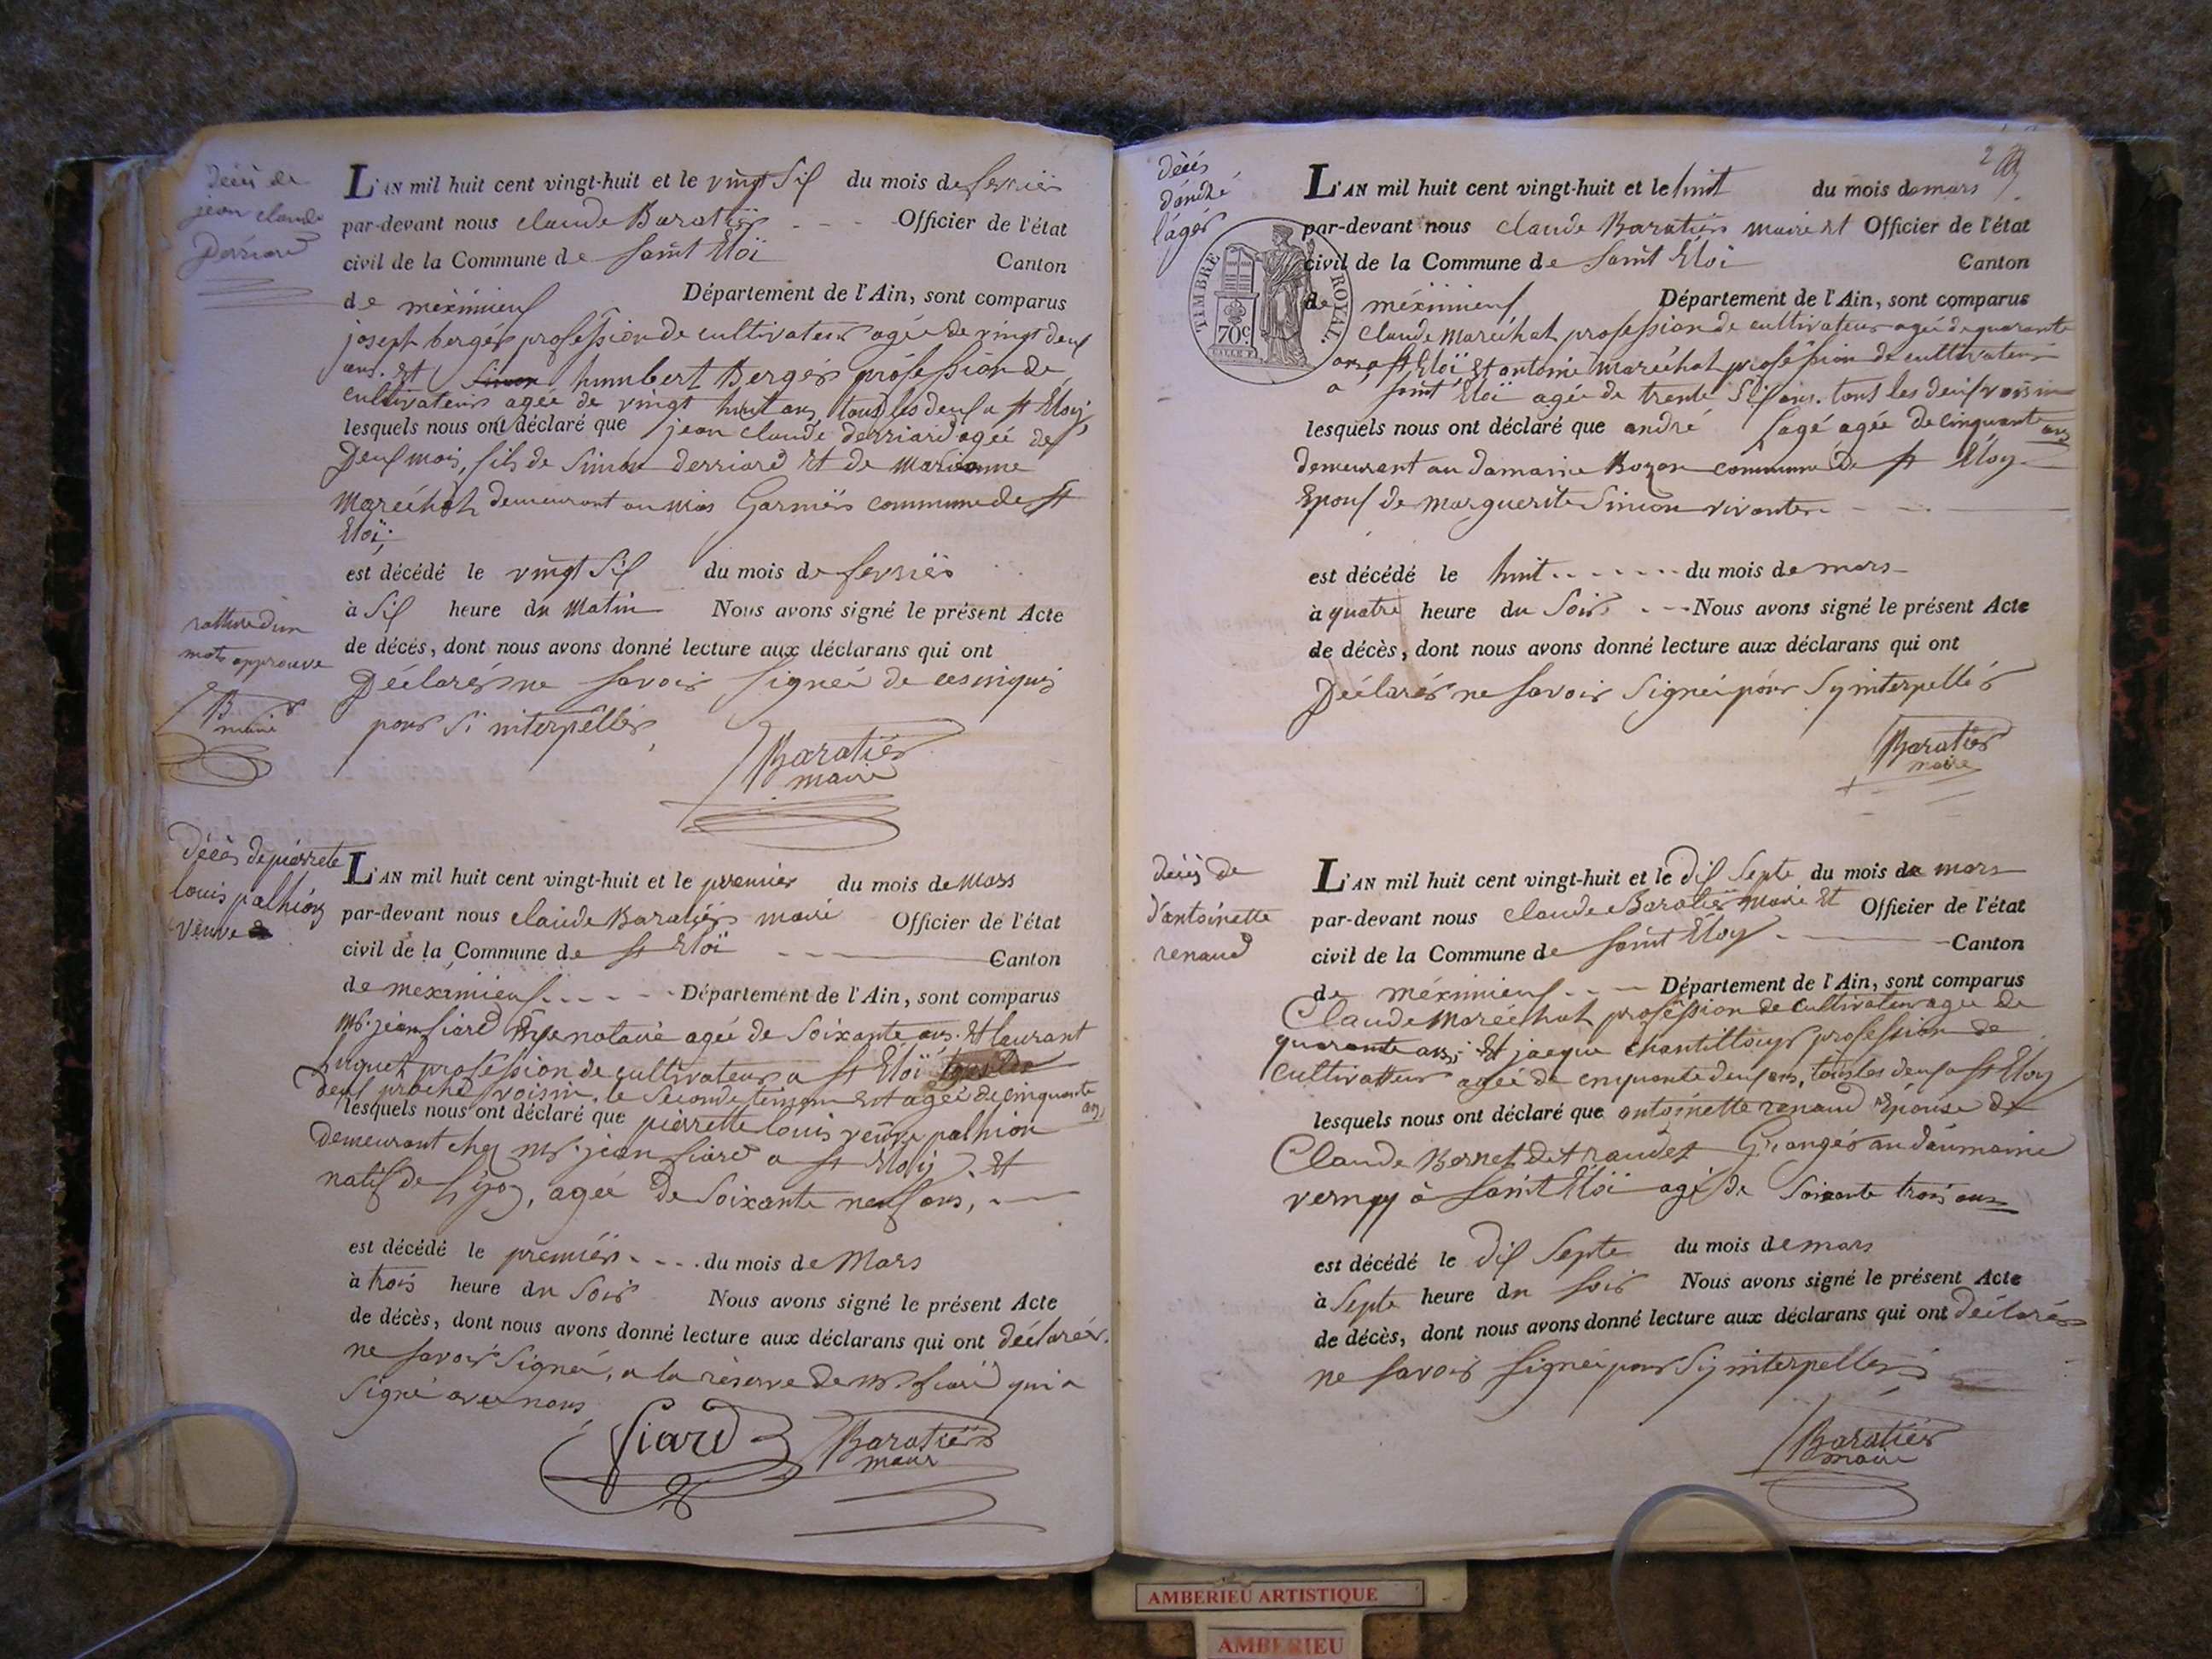 décès de
jean claude
derriard
L'AN mil huit cent vingt-huit et le vingt Six du mois de fevrier
par-devant nous claude Baratier - - - Officier de l'état
civil de la Commune de saint Eloï Canton
de méximieux Département de l'Ain, sont comparus
joseph bergér profession de cultivateur agée de vingt deux
ans. Et humbert Bergér profession de
cultivateur agée de vingt huit ans tous les deux a st Eloy
lesquels nous ont déclaré que jean claude derriard agée de
Deux mois, fils de Simon derriard Et de Marianne
Maréchal demeurant au mas Garnier commune de st
Eloï;
est décédé le vingt Six du mois de fevrier
à Six heure du Matin Nous avons signé le présent Acte
de décès, dont nous avons donné lecture aux déclarans qui ont
Déclarér ne savoir signée de
pour si interpellér
rature d'un
mots approuve
B
maire
Baratiér
maire
Décès de pierrete
louis palhion
veuve
L'AN mil huit cent vingt-huit et le premier du mois de Mars
par-devant nous claude Baratier maire Officier de l'état
civil de la Commune de st Eloï - - - Canton
de meximieux - - - - - Département de l'Ain, sont comparus
mr. jean siard notaire agée de Soixante ans. Et laurant
huguet profession de cultivateur a st Eloï tous les
deux proche voisin. le Seconde temoin Est agée de cinquante
ans
lesquels nous ont déclaré que pierrette louis veuve palhion
demeurant chez mr. jean siard a st Eloy. Et
natif de Lyon, agée de Soixante neuf ans, -
est décédé le premiér - - - . du mois de Mars
à trois heure du Soir Nous avons signé le présent Acte
de décès, dont nous avons donné lecture aux déclarans qui ont déclarér.
ne savoir Signée, a la réserve de mr. siard qui a
Signé avec nous
Siard Baratiér
maire
2
décés
d'andré
lagér
L'AN mil huit cent vingt-huit et le huit du mois de mars
par-devant nous claude Baratier maire Et Officier de l'état
civil de la Commune de saint Eloi Canton
de méximieux Département de l'Ain, sont comparus
TIMBRE ROYAL.
70c
Claude Maréchal profession de cultivateur agée de quarante
ans a st Eloï Et antoine Maréchal profession de cultivateur
a saint Eloï agée de trente Six ans. tous les deux voisin
lesquels nous ont déclaré que andré lagé agée de cinquante ans
demeurant au domaine Bozon commune de st Eloy
Epoux de marguerite Simon vivante - - -
est décédé le huit - - - - - - du mois de mars
à quatre heure du Soir - - - Nous avons signé le présent Acte
de décès, dont nous avons donné lecture aux déclarans qui ont
Déclarér ne savoir Signée pour Sy interpellér
Baratiér
maire
décès de
d'antoinette
renaud
L'AN mil huit cent vingt-huit et le dix Septe du mois de mars
par-devant nous claude Baratier Maire Et Officier de l'état
civil de la Commune de saint Eloy - Canton
de méximieux - - - Département de l'Ain, sont comparus
Claude Maréchal profession de cultivateur agée de
quarante ans; Et jacque profession de
cultivatteur agée de cinquante deux ans, tous les deux a st Eloy
lesquels nous ont déclaré que antoinette renaud Epouse de
Claude Bernet dit Grangér au daumaine
vernay à saint Eloï agé de Soixante trois ans
est décédé le dix Septe du mois de mars
à Septe heure du soir Nous avons signé le présent Acte
de décès, dont nous avons donné lecture aux déclarans qui ont déclarér
ne savoir Signée pour Sy interpeller
Baratiér
maire
AMBERIEU ARTISTIQUE
AMBERIEU